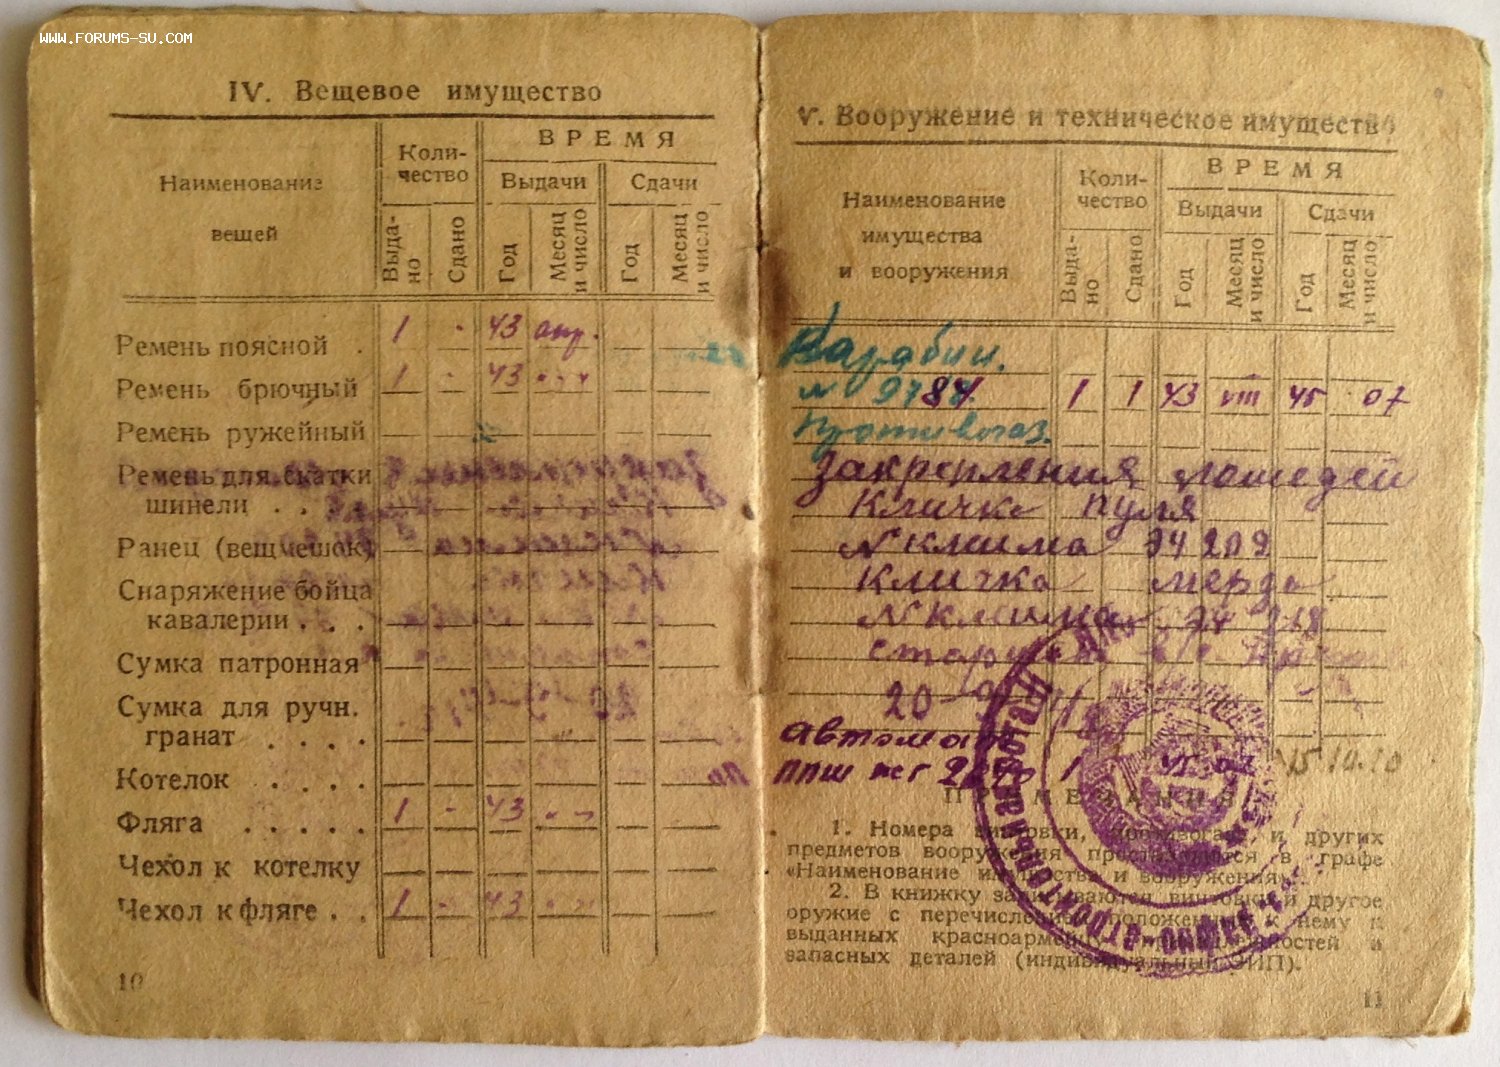 www.forums-su.com
IV. Вещевое имущество
Наименование вещей
Коли-
чество
ВРЕМЯ
Выдачи
Сдачи
Выда-
но
Сдано
Год
Месяц
и число
Год
Месяц
и число
Ремень поясной . 1 - 43 апр.
Ремень брючный 1 - 43
Ремень ружейный
Ремень для скатки
шинели . . .
Ранец (вещмешок)
Снаряжение бойца
кавалерии . . .
Сумка патронная
Сумка для ручн.
гранат . . . .
Котелок . . . .
Фляга . . . . . 1 - 43
Чехол к котелку
Чехол к фляге . . 1 - 43
10
V. Вооружение и техническое имущество
Наименование
имущества
и вооружения
Коли-
чество
ВРЕМЯ
Выдачи
Сдачи
Выда-
но
Сдано
Год
Месяц
и число
Год
Месяц
и число
Карабин.
1 1 43 VIII 45 07
Противогаз.
Закрепления лошедей
Кличка Пуля
N клима 74209
Кличка
N клима
20-
Автомат
ППШ 1 45 15.10.10
ПРИМЕЧАНИЯ
1. Номера винтовки, противогаза и других
предметов вооружения проставляются в графе
«Наименование имущества и вооружения».
2. В книжку записываются винтовка и другое
оружие с перечислением положенных к нему и
выданных красноармейцу принадлежностей и
запасных деталей (индивидуальный ЗИП).
11